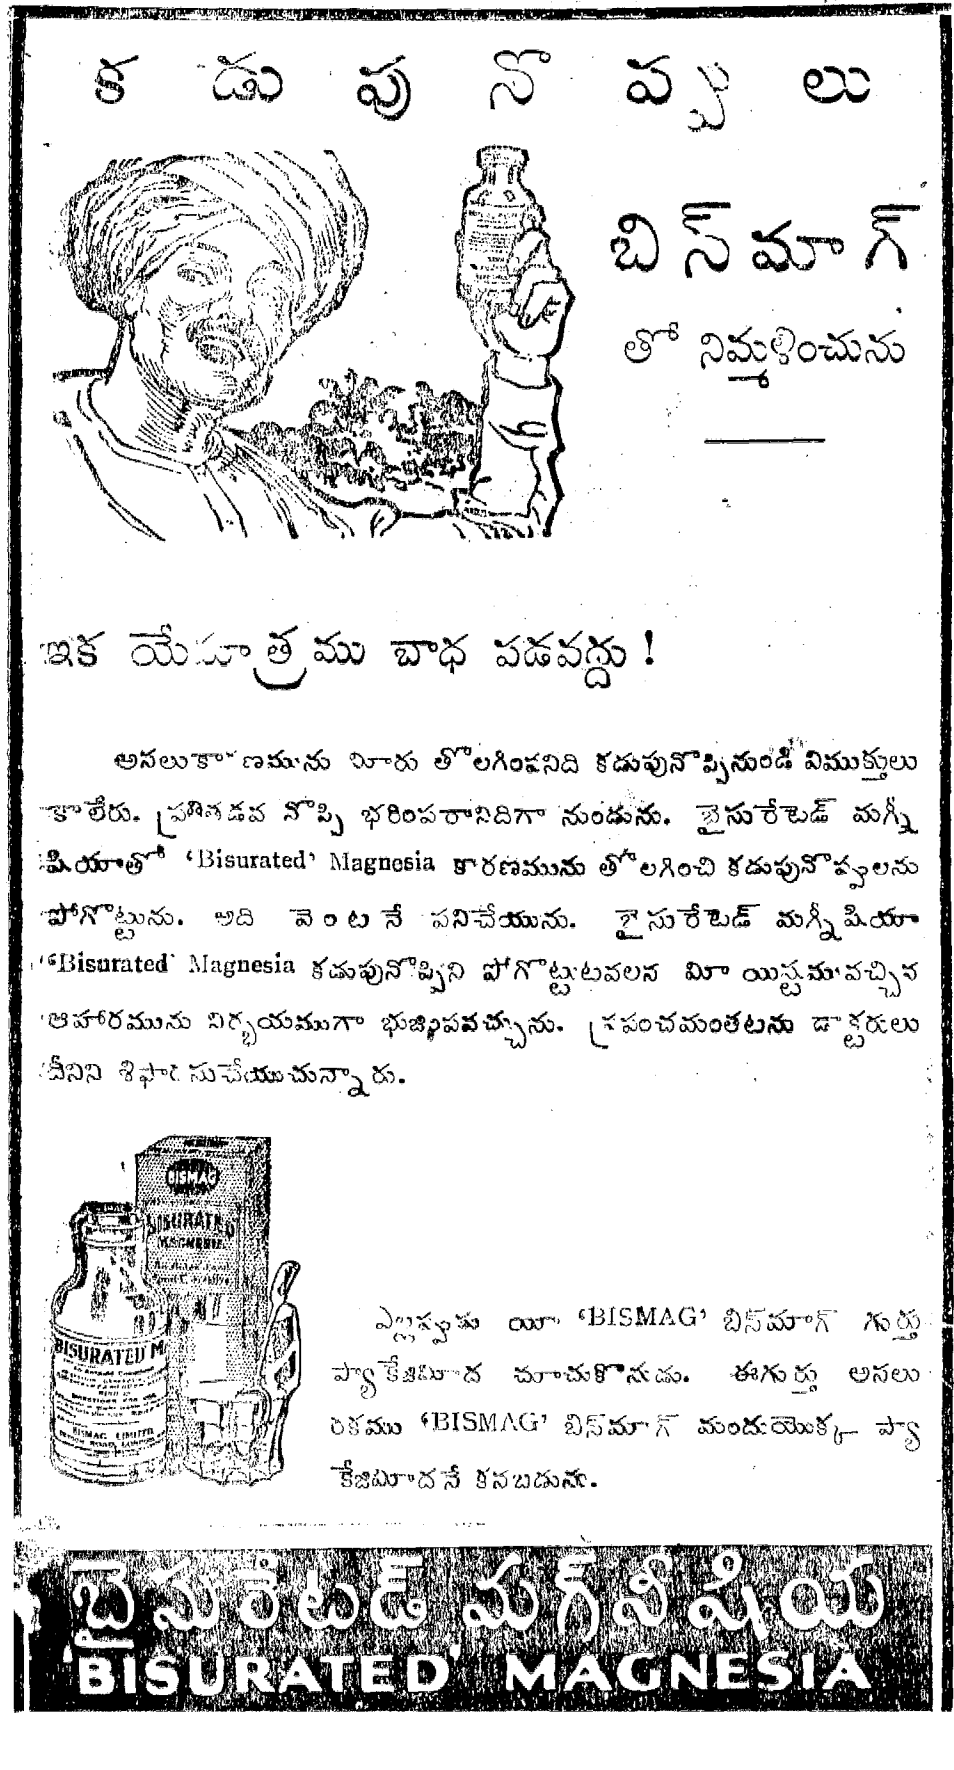 కడుపునొప్పులు
బిస్‌మాగ్
తో నిమ్మళించును
ఇక యేమాత్రము బాధ పడవద్దు!
అసలుకారణమును మీరు తొలగింపనిది కడుపునొప్పినుండి విముక్తులు
కాలేరు. ప్రతితడవ నొప్పి భరింపరానిదిగా నుండును. బైసురేటెడ్ మగ్నీ
షియాతో 'Bisurated' Magnesia కారణమును తొలగించి కడుపునొప్పులను
పోగొట్టును. అది వెంటనే పనిచేయును. బైసురేటెడ్ మగ్నీషియా
'Bisurated' Magnesia కడుపునొప్పిని పోగొట్టుటవలన మీ యిష్టమువచ్చిన
ఆహారమును నిర్భయముగా భుజింపవచ్చును. ప్రపంచమంతటను డాక్టరులు
దీనిని శిఫారసుచేయుచున్నారు.
BISMAG
BISURATED
MAGNESIA
BISURATED M
BISMAG LIMITED
ఎల్లప్పుడు యీ 'BISMAG' బిస్‌మాగ్ గుర్తు
ప్యాకేజిమీద చూచుకొనుడు. ఈగుర్తు అసలు
రకము 'BISMAG' బిస్‌మాగ్ మందుయొక్క ప్యా
కేజిమీదనే కనబడును.
బైసురేటెడ్ మగ్‌నీషియ
'BISURATED' MAGNESIA